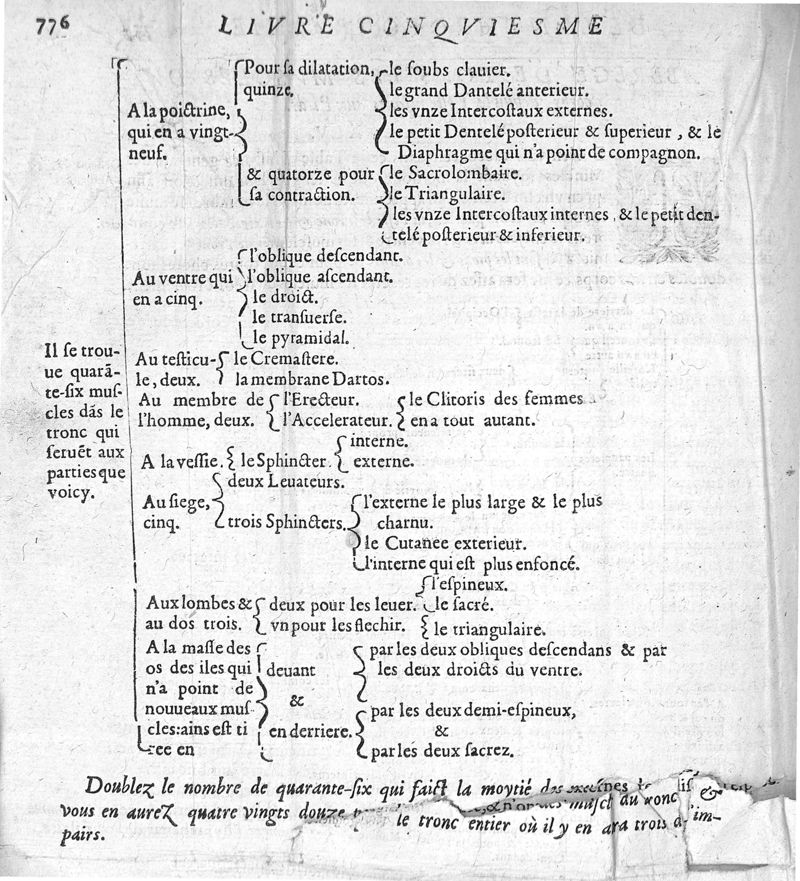 776
LIVRE CINQVIESME
Il se trou-
ue quarã-
te-six mus-
cles dãs le
tronc qui
seruẽt aux
parties que
voicy.
A la poictrine,
qui en a vingt-
neuf.
Pour sa dilatation,
quinze.
le soubs clauier.
le grand Dantelé anterieur.
les vnze Intercostaux externes.
le petit Dentelé posterieur & superieur, & le
Diaphragme qui n'a point de compagnon.
& quatorze pour
sa contraction.
le Sacrolombaire.
le Triangulaire.
les vnze Intercostaux internes, & le petit den-
telé posterieur & inferieur.
Au ventre qui
en a cinq.
l'oblique descendant.
l'oblique ascendant.
le droict.
le transuerse.
le pyramidal.
Au testicu-
le, deux.
le Cremastere.
la membrane Dartos.
Au membre de
l'homme, deux.
l'Erecteur.
l'Accelerateur.
le Clitoris des femmes
en a tout autant.
A la vessie.
le Sphincter.
interne.
externe.
Au siege,
cinq.
deux Leuateurs.
trois Sphincters.
l'externe le plus large & le plus
charnu.
le Cutanee exterieur.
l'interne qui est plus enfoncé.
Aux lombes &
au dos trois.
deux pour les leuer.
l'espineux.
le sacré.
vn pour les flechir.
le triangulaire.
A la masse des
os des iles qui
n'a point de
nouueaux mus-
cles: ains est ti
ree en
deuant
&
en derriere.
par les deux obliques descendans & par
les deux droicts du ventre.
par les deux demi-espineux,
&
par les deux sacrez.
Doublez le nombre de quarante-six qui faict la moytié des
vous en aurez quatre vingts douze le tronc entier où il y en a trois d'im-
pairs.